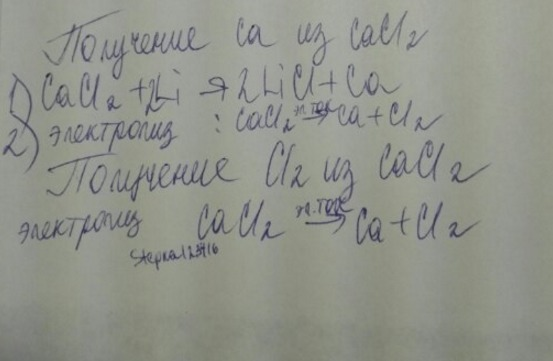 Получение Ca из CaCl2
1) CaCl2 + 2Li → 2LiCl + Ca
2) электролиз : CaCl2 эл.ток→ Ca + Cl2
Получение Cl2 из CaCl2
электролиз CaCl2 эл.ток→ Ca + Cl2